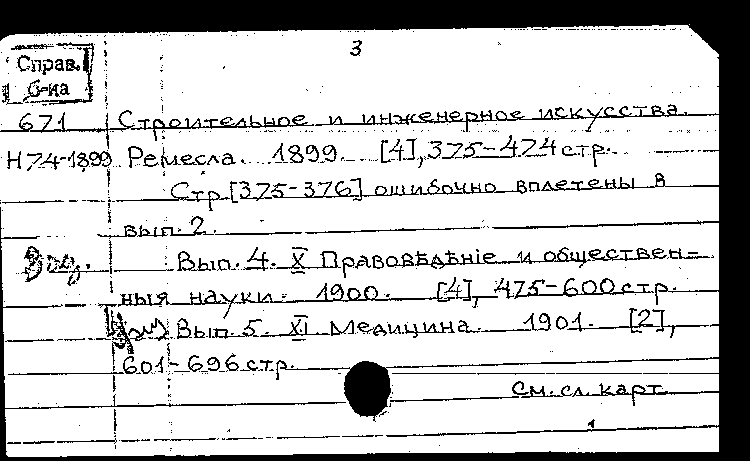 3
Справ.
б-ка
671 Строительное и инженерное искусства.
Н74-1899 Ремесла. 1899. [4], 375-474 стр.
Стр. [375-376] ошибочно вплетены в
вып. 2.
Вып. 4. X Правовѣдѣніе и обществен=
ныя науки. 1900. [4], 475-600 стр.
Вып. 5. XI. Медицина. 1901. [2],
601-696 стр.
См. сл. карт